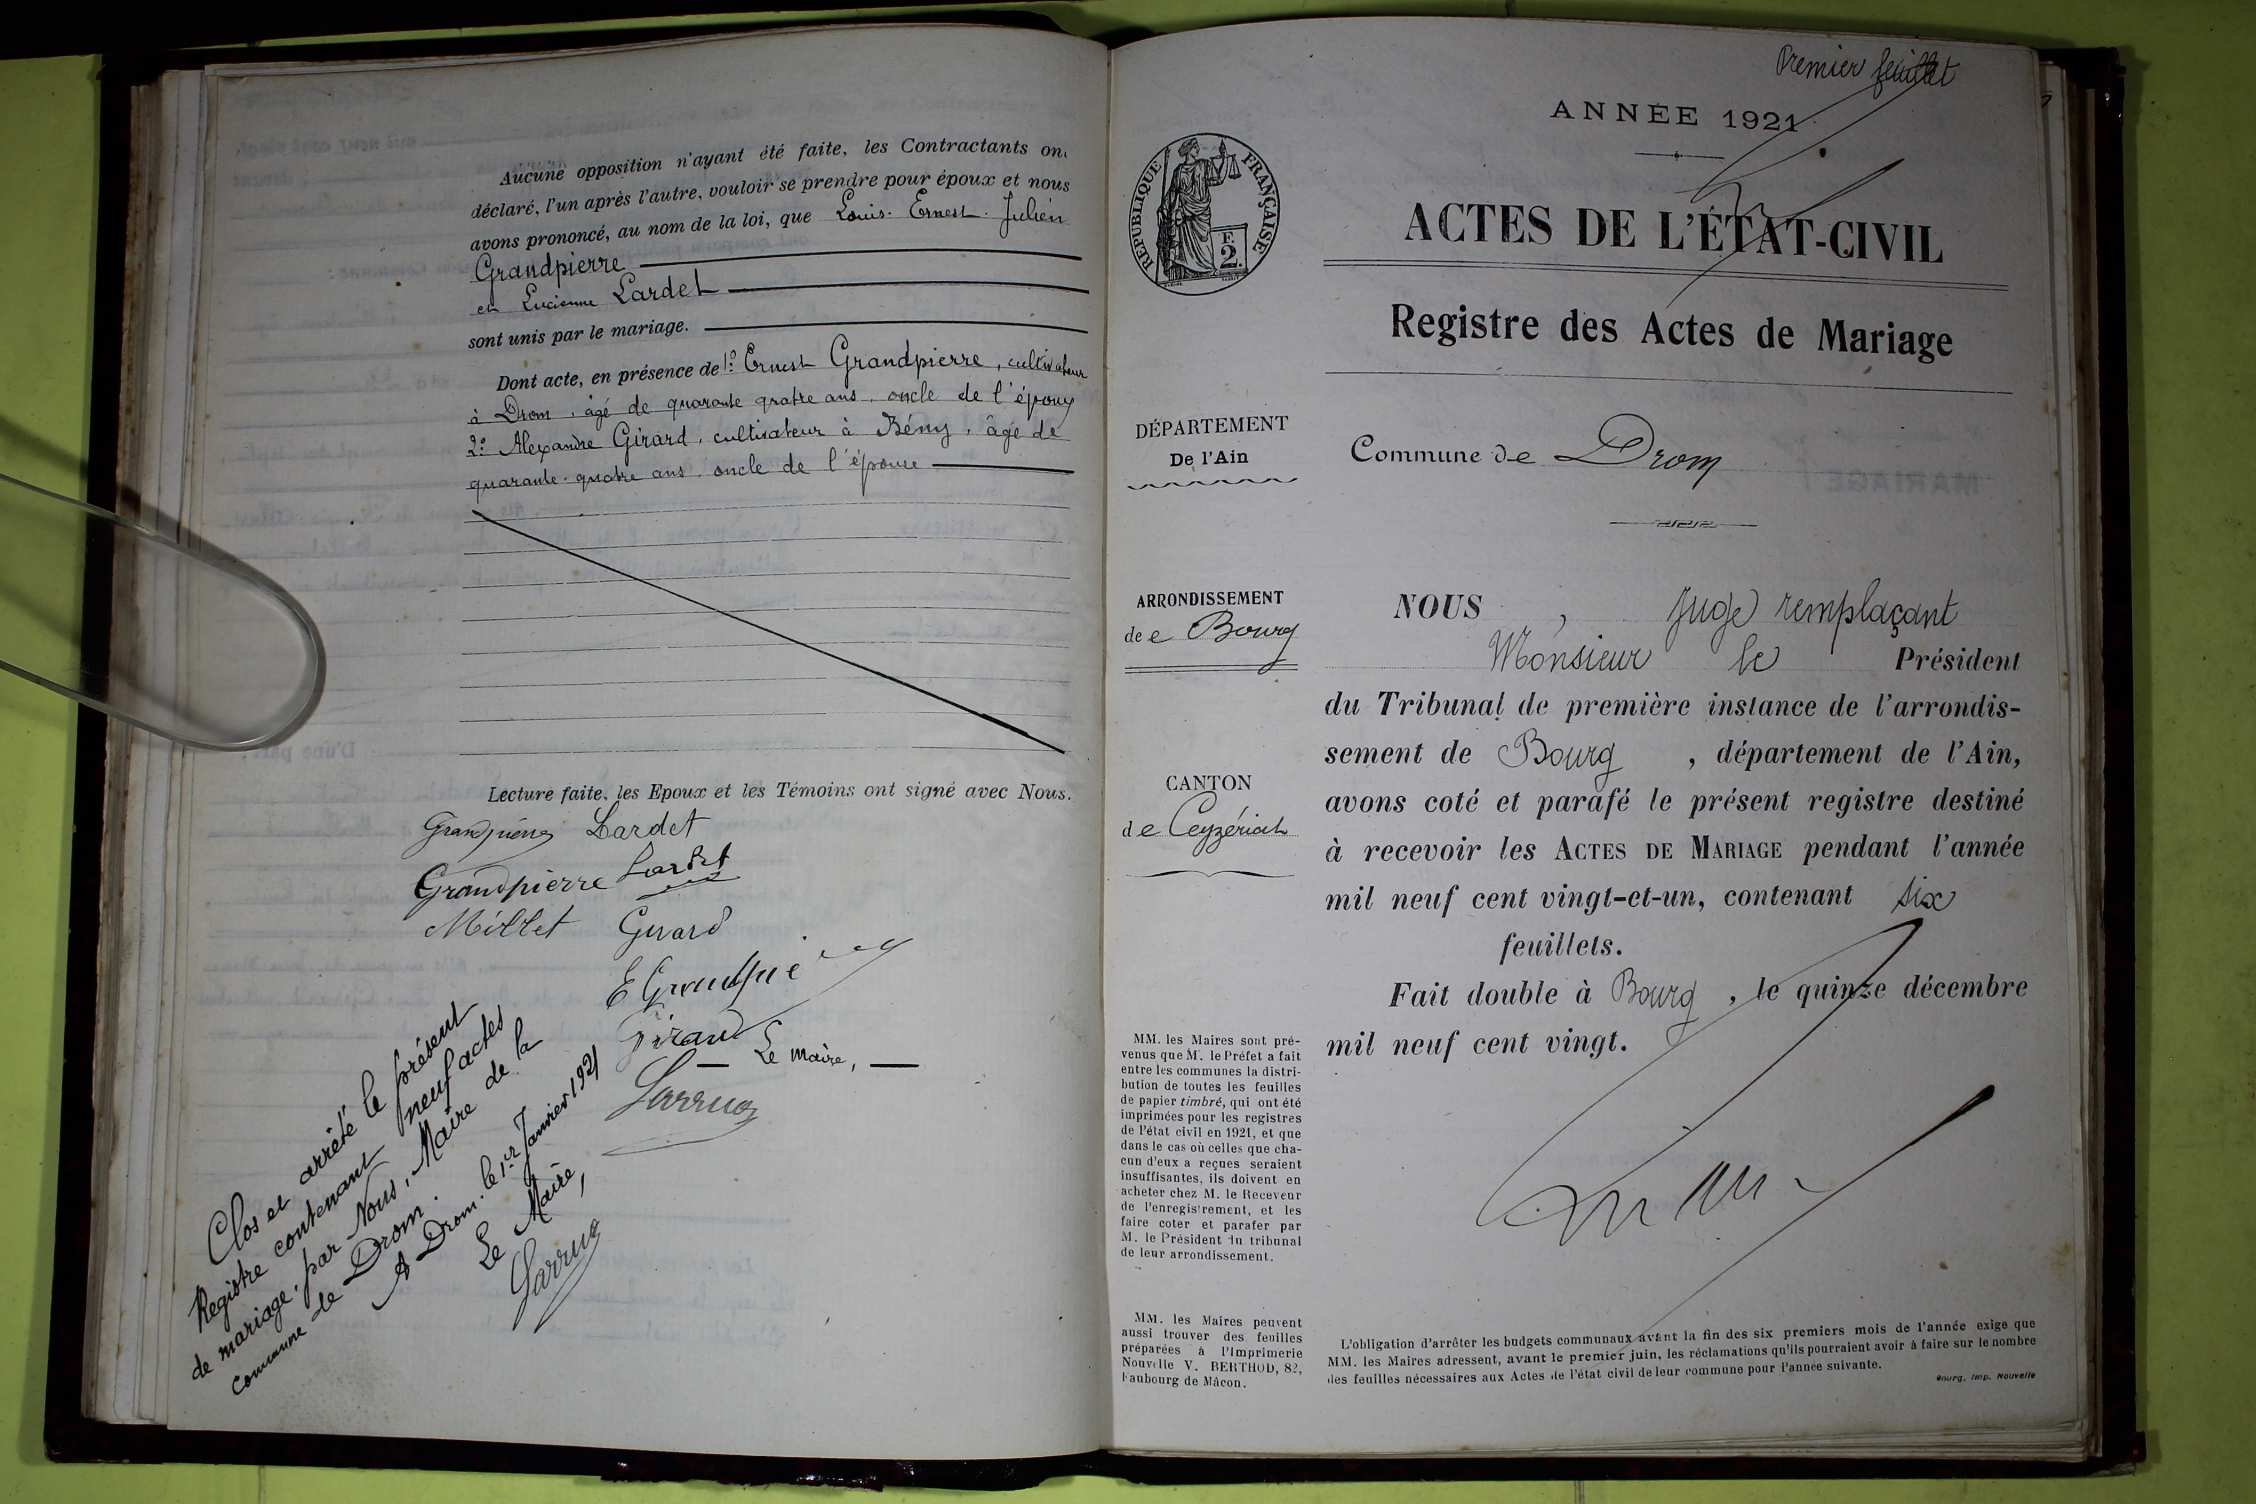 Aucune opposition n'ayant été faite, les Contractants on
déclaré, l'un après l'autre, vouloir se prendre pour époux et nous
avons prononcé, au nom de la loi, que Louis. Ernest. Julien
Grandpierre
et Lucienne Lardet
sont unis par le mariage.
Dont acte, en présence de 1º Ernest Grandpierre, cultivateur
à Drom, âgé de quarante quatre ans, oncle de l'époux
2º Alexandre Girard, cultivateur à Bény, âgé de
quarante-quatre ans, oncle de l'épouse
Lecture faite, les Epoux et les Témoins ont signé avec Nous.
Lardet
Grandpierre Lardet
Millet Girard
Girard
Le maire,
Clos et arrêté le présent
Registre contenant neuf actes
de mariage, par Nous, Maire de la
commune de Drom.
A Drom, le 1er Janvier 1921
Le Maire,
Premier feuillet
ANNÉE 1921
RÉPUBLIQUE FRANÇAISE
F.
2.
ACTES DE L'ÉTAT-CIVIL
Registre des Actes de Mariage
DÉPARTEMENT
De l'Ain
Commune de Drom
ARRONDISSEMENT
de e Bourg
CANTON
de Ceyzériat
NOUS, Juge remplaçant
Monsieur le Président
du Tribunal de première instance de l'arrondis-
sement de Bourg, département de l'Ain,
avons coté et parafé le présent registre destiné
à recevoir les ACTES DE MARIAGE pendant l'année
mil neuf cent vingt-et-un, contenant six
feuillets.
Fait double à Bourg, le quinze décembre
mil neuf cent vingt.
MM. les Maires sont pré-
venus que M. le Préfet a fait
entre les communes la distri-
bution de toutes les feuilles
de papier timbré, qui ont été
imprimées pour les registres
de l'état civil en 1921, et que
dans le cas où celles que cha-
cun d'eux a reçues seraient
insuffisantes, ils doivent en
acheter chez M. le Receveur
de l'enregistrement, et les
faire coter et parafer par
M. le Président du tribunal
de leur arrondissement.
MM. les Maires peuvent
aussi trouver des feuilles
préparées à l'Imprimerie
Nouvelle V. BERTHOD, 82,
Faubourg de Mâcon.
L'obligation d'arrêter les budgets communaux avant la fin des six premiers mois de l'année exige que
MM. les Maires adressent, avant le premier juin, les réclamations qu'ils pourraient avoir à faire sur le nombre
des feuilles nécessaires aux Actes de l'état civil de leur commune pour l'année suivante.
Bourg, Imp. Nouvelle